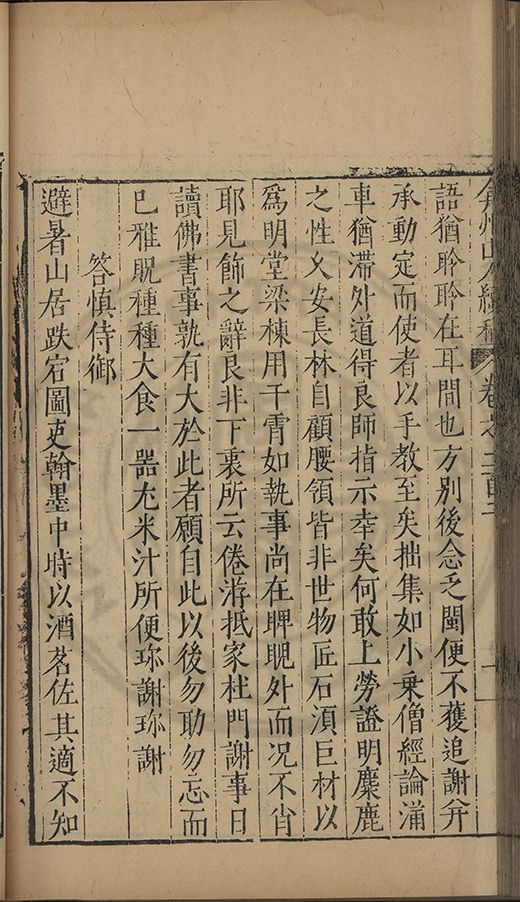 弇州山人續稿 卷之二百二
語猶聆聆在耳間也方別後念乏閩便不獲追謝并
承動定而使者以手教至矣拙集如小乗僧經論滿
車猶滯外道得良師指示幸矣何敢上勞證明麋鹿
之性义安長林自顧腰領皆非世物匠石湏巨材以
為明堂梁棟用干霄如執事尚在睥睨外而况不肖
耶見飾之辭良非下裏所云倦游抵家杜門謝事日
讀佛書事孰有大於此者願自此以後勿助勿忘而
已雅貺種種大食一噐充米汁所便珎謝珎謝
答慎侍御
避暑山居跌宕圖吏翰墨中時以酒茗佐其適不知